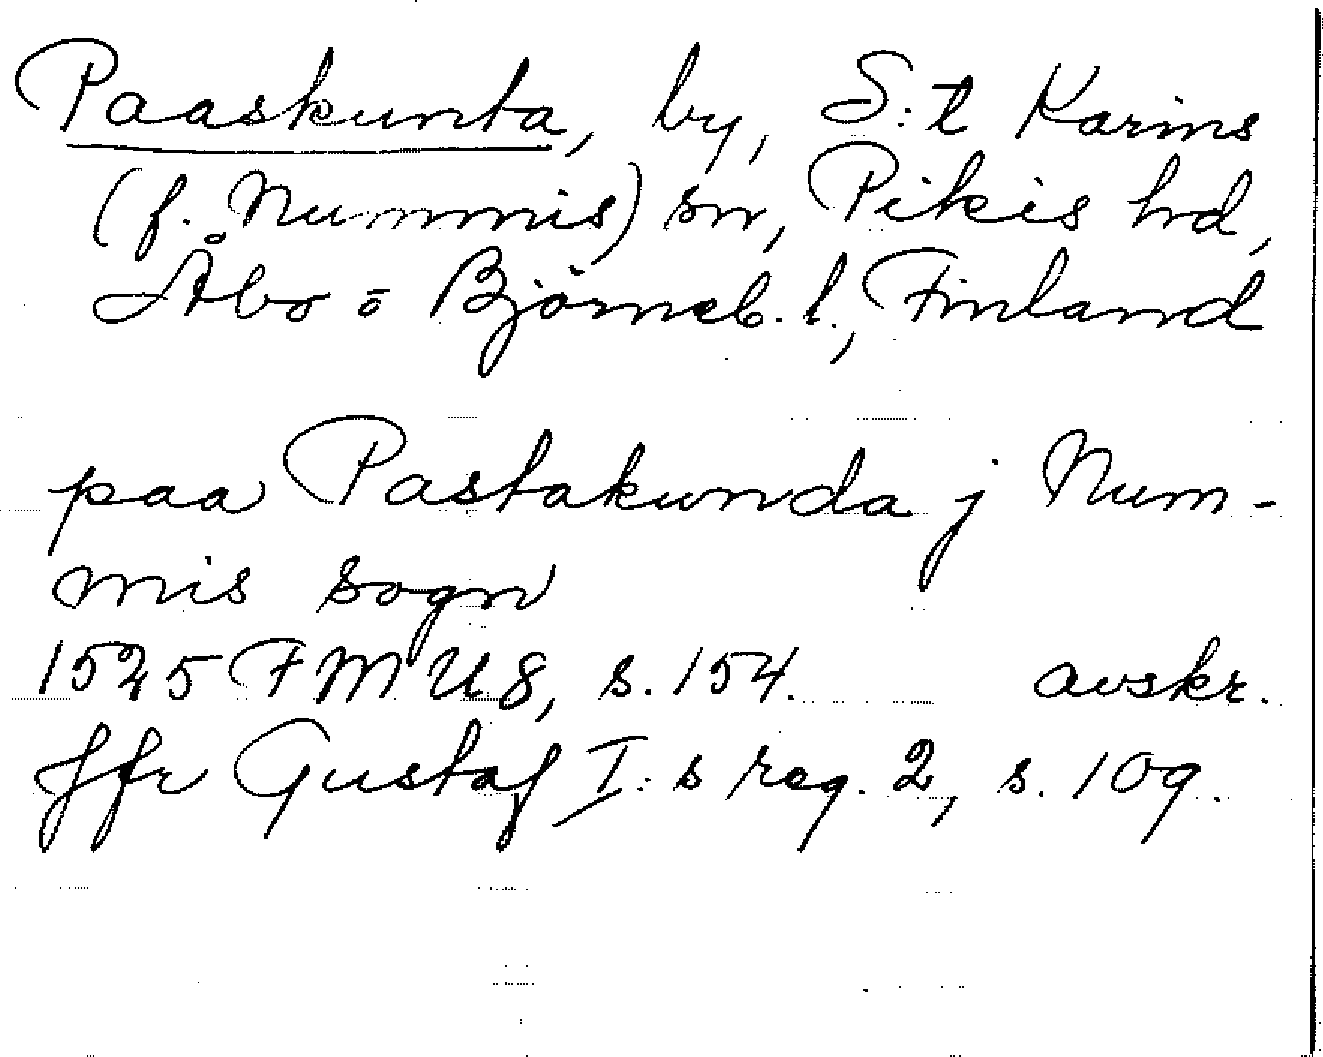 Paaskunta, by, S:t Karins
(f. Nummis) sn, Pikis hd,
Åbo o Björneb. l., Finland
paa Pastakunda j Num-
mis sogn
1525 FMU 8, s. 154. avskr.
Jfr Gustaf I:s reg. 2, s. 109.